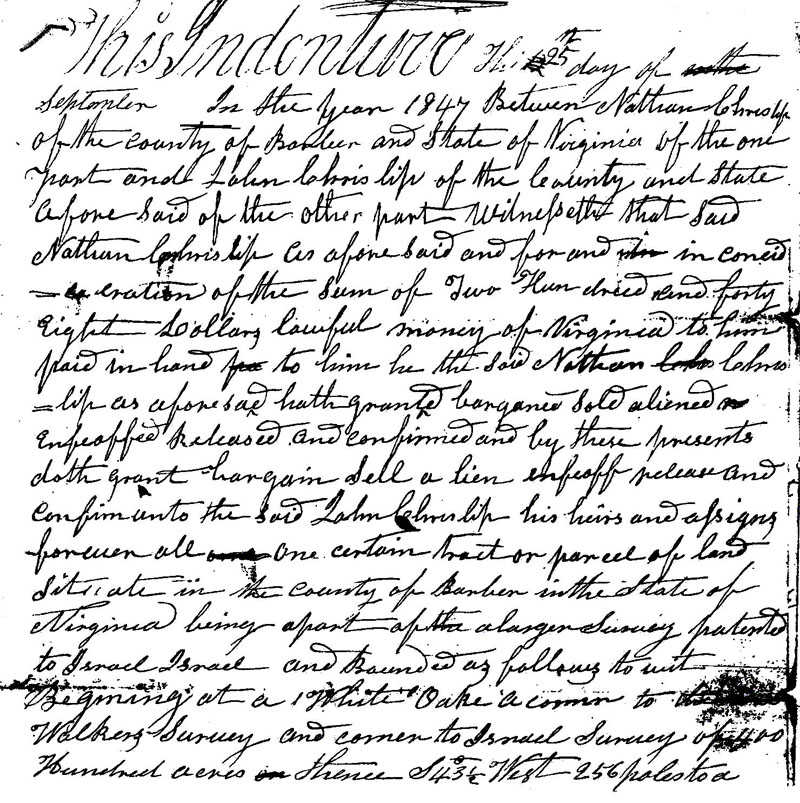 This Indenture This 25th day of
September In the year 1847 Between Nathan Chrislip
of the county of Barber and State of Virginia of the one
part and John Chrislip of the County and State
afore said of the other part Witnesseth that said
Nathan Chrislip as afore said and for and in concid
=eration of the sum of Two Hundreed and forty
Eight Dollars lawful money of Virginia to him
paid in hand to him he the said Nathan Chris
=lip as aforesad hath granted barganed sold aliened
Enfeoffed Released and confirmed and by these presents
doth grant bargain sell a lien enfeoff release and
confim unto the said John Chrislip his heirs and assigns
forever all one certain tract or parcel of land
Situate in the county of Barber in the State of
Virginia being apart of the a larger Survey patented
to Israel Israel and Bounded as follows to wit
Begining at a White Oake a corner to
Walkers Survey and corner to Israel Survey of 400
Hundred acres Thence S 43½ West 256 poles to a